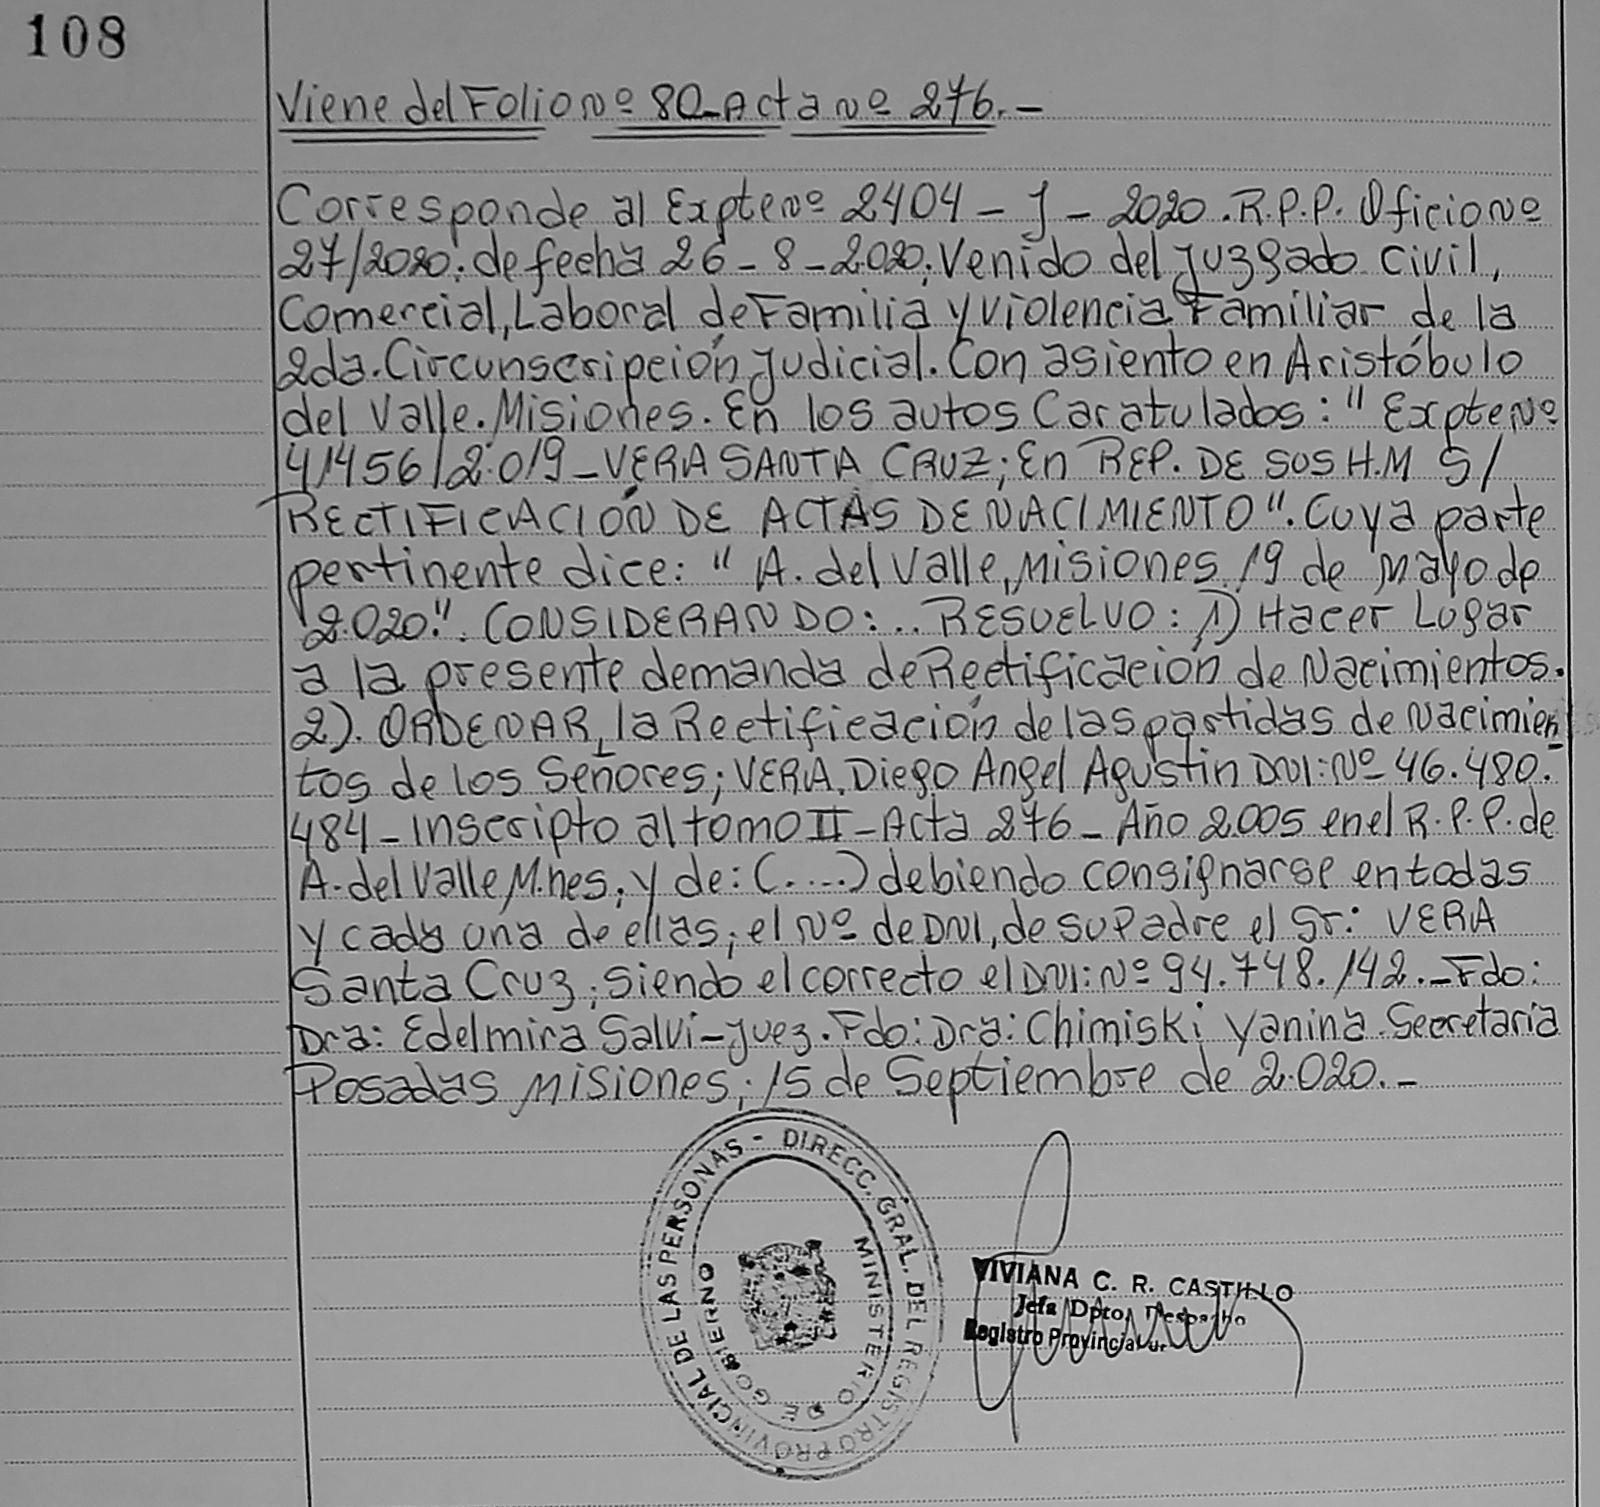 108
Viene del Folio Nº 80 Acta Nº 276.-
Corresponde al Expte Nº 2404 - J - 2020. R.P.P. Oficio Nº
27/2020. de fecha 26 - 8 - 2.020. Venido del Juzgado Civil,
Comercial, Laboral de Familia y Violencia Familiar de la
2da. Circunscripción Judicial. Con asiento en Aristóbulo
del Valle. Misiones. En los autos Caratulados: " Expte Nº
41456/2.019 - VERA SANTA CRUZ; En REP. DE SUS H.M S/
RECTIFICACIÓN DE ACTAS DE NACIMIENTO". Cuya parte
pertinente dice: " A. del Valle, Misiones 19 de Mayo de
2.020". CONSIDERANDO: .. RESUELVO: 1) Hacer Lugar
a la presente demanda de Rectificación de Nacimientos.
2). ORDENAR, la Rectificación de las partidas de Nacimien
tos de los Señores; VERA. Diego Angel Agustin DNI: Nº 46.480.-
484 - Inscripto al tomo II - Acta 276 - Año 2.005 en el R.P.P. de
A. del Valle M.nes, y de: (....) debiendo consignarse en todas
y cada una de ellas; el Nº de DNI, de su Padre el Sr: VERA
Santa Cruz; Siendo el correcto el DNI: Nº 94.748.142. - Fdo:
Dra: Edelmira Salvi - Juez. Fdo: Dra: Chimiski Yanina Secretaria
Posadas Misiones; 15 de Septiembre de 2.020. -
DIRECC. GRAL. DEL REGISTRO PROVINCIAL DE LAS PERSONAS -
MINISTERIO DE GOBIERNO
VIVIANA C. R. CASTILLO
Jefa Dpto. Despacho
Registro Provincial